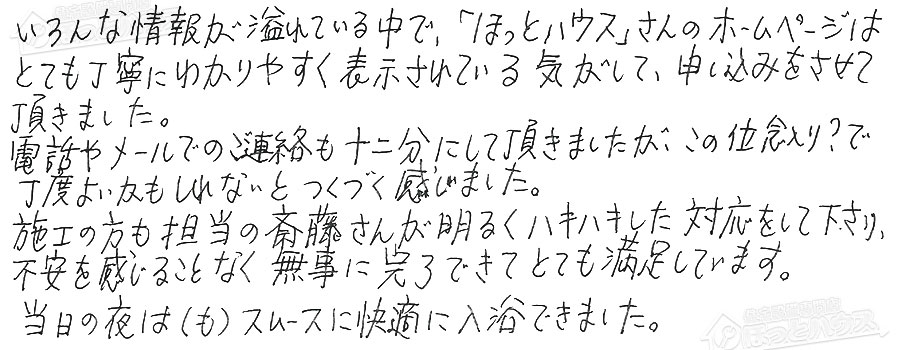 いろんな情報が溢れている中で、「ほっとハウス」さんのホームページは
とても丁寧にわかりやすく表示されている気がして、申し込みをさせて
頂きました。
電話やメールでのご連絡も十二分にして頂きましたが、この位念入り?で
丁度よいかもしれないとつくづく感じました。
施工の方も担当の斎藤さんが明るくハキハキした対応をして下さり、
不安を感じることなく無事に完了できてとても満足しています。
当日の夜は(も)スムースに快適に入浴できました。
ほっとハウス